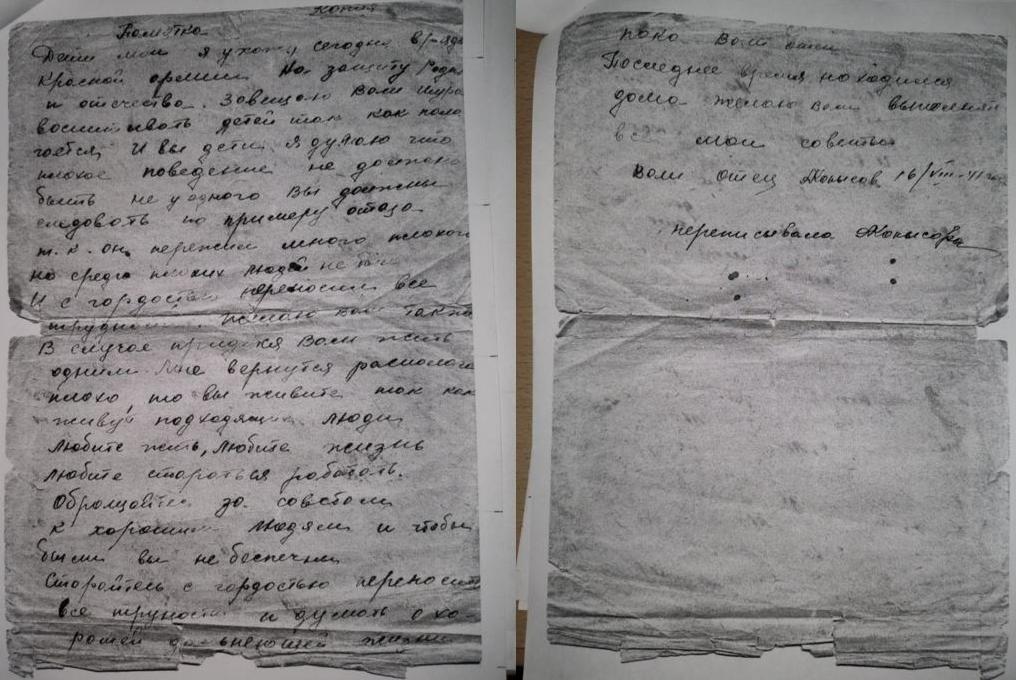 Копия
Памятка
Дети мои я ухожу сегодня в р-яды
Красной армии на защиту Роди
и отечества. Завещаю Вам Шура
воспитывать детей так как пола
гается, И вы дети я думаю что
плохое поведение не должно
быть не у одного Вы должны
следовать по примеру отца
т.к. он пережил много плохого
но среди плохих людей не был
И с гордостью переносил все
трудности. Желаю вам также
В случае придется Вам жить
одними. Мне вернутся располога
плохо, то вы живите так как
живут подходящие люди
Любите жить, любите жизнь
любите стораться работать.
Обращайтесь за советом
к хорошим людям и чтобы
были вы не беспечны
Старайтесь с гордостью переносить
все труности и думать о хо-
рошей дальнеющей жизни
пока Вам отец
Последнее время находился
дома желаю вам выполнять
все мои советы
Вам отец 16/VIII-41
переписывала